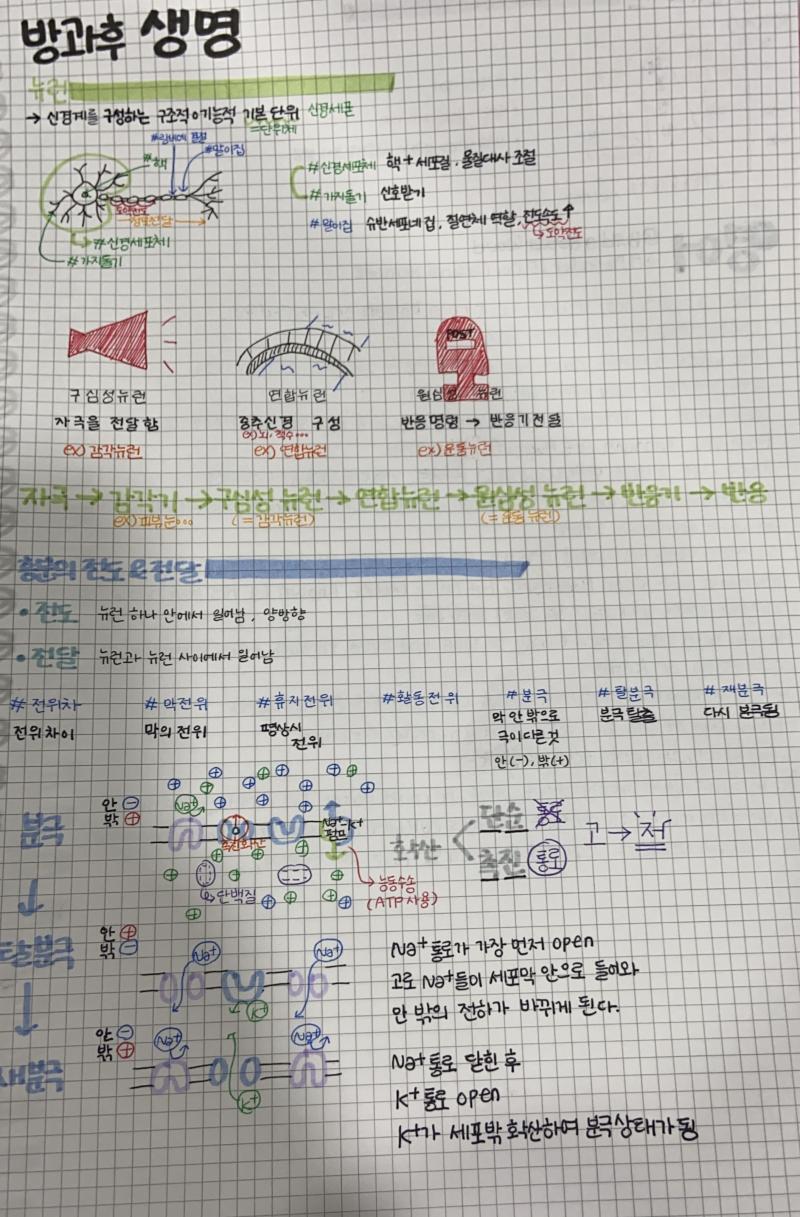 방과후 생명
뉴런
→ 신경계를 구성하는 구조적•기능적 기본 단위 신경세포
=단위체
#랑비에 결절
#말이집
#핵
도약전도
#신경세포체
#가지돌기
#신경세포체 핵+세포질, 물질대사 조절
#가지돌기 신호받기
#말이집 슈반세포네 집, 절연체 역할, 전도속도↑
↳도약전도
POST
구심성뉴런 연합뉴런 원심성 뉴런
자극을 전달함 중추신경 구성 반응명령 → 반응기전달
ex) 뇌, 척수...
ex) 감각뉴런 ex) 연합뉴런 ex) 운동뉴런
자극 → 감각기 → 구심성 뉴런 → 연합뉴런 → 원심성 뉴런 → 반응기 → 반응
ex) 피부, 눈... (=감각뉴런) (=운동뉴런)
흥분의 전도 & 전달
• 전도 뉴런 하나 안에서 일어남, 양방향
• 전달 뉴런과 뉴런 사이에서 일어남
#전위차 #막전위 #휴지전위 #활동전위 #분극 #탈분극 #재분극
전위차이 막의 전위 평상시 전위 막 안 밖으로 극이 다른 것 분극 탈출 다시 분극됨
안(-), 밖(+)
분극
안 ⊖
밖 ⊕
Na+
촉진확산
Na+-K+
펌프
↳단백질
→능동수송
(ATP 사용)
확산 < 단순 통로
촉진 통로
고 → 저
↓
탈분극
안 ⊕
밖 ⊖
Na+ Na+
K+
Na+ 통로가 가장 먼저 open
고로 Na+들이 세포막 안으로 들어와
안 밖의 전하가 바뀌게 된다.
↓
재분극
안 ⊖
밖 ⊕
Na+ Na+
K+
Na+ 통로 닫힌 후
K+ 통로 open
K+가 세포밖 확산하여 분극상태가 됨